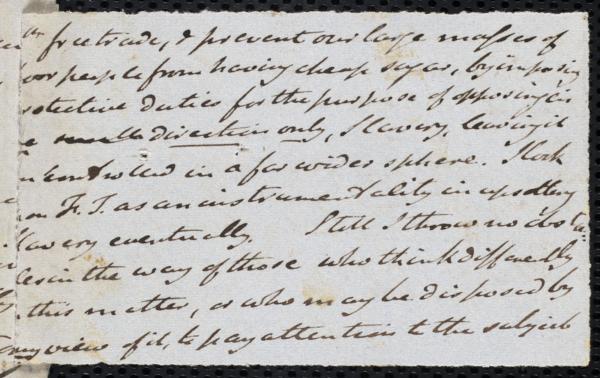 free trade, & prevent our large masses of
poor people from having cheap sugar, by imposing
protective duties for the purpose of opposing in
one small direction only, Slavery, leaving it
uncontrolled in a far wider sphere. I look
on F. T. as an instrumentality in upsetting
Slavery eventually. Still I throw no obsta-
cles in the way of those who think differently
this matter, or who may be disposed by
any view of it, to pay attention to the subject